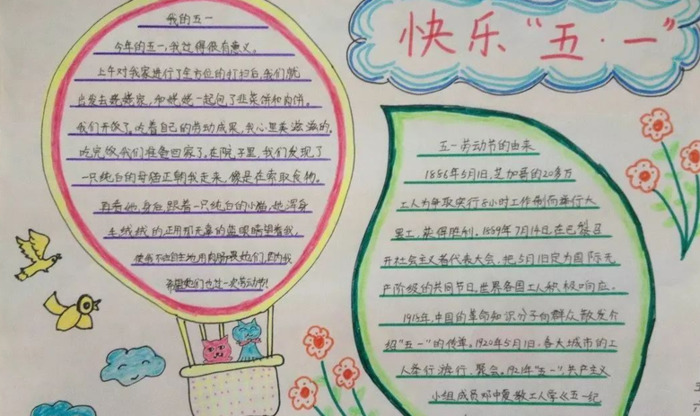 快乐“五·一”
我的五一
今年的五一，我过得很有意义。
上午对我家进行了全方位的打扫后，我们就
出发去姥姥家，和姥姥一起包了韭菜饼和肉饼。
我们开饭了，吃着自己的劳动成果，我心里美滋滋的。
吃完饭我们准备回家了，在院子里，我们发现了
一只纯白的母猫正朝我走来，像是在索取食物。
再看她身后，跟着一只纯白的小猫，她浑身
毛绒绒的，正用那天真的蓝眼睛望着我，
使我不由自主地用肉肠喂她们，因为我
希望她们也过一次劳动节！
五一劳动节的由来
1886年5月1日，芝加哥的20多万
工人为争取实行8小时工作制而举行大
罢工，获得胜利。1889年7月14日，在巴黎召
开社会主义者代表大会，把5月1日定为国际无
产阶级的共同节日。世界各国工人积极响应。
1918年，中国的革命知识分子向群众散发介
绍“五一”的传单。1920年5月1日，各大城市的工
人举行游行、聚会。1921年“五一”，共产主义
小组成员邓中夏教工人学《五一